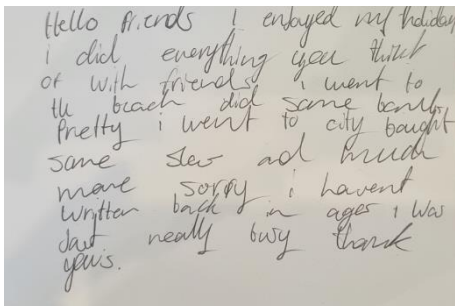 Hello friends i enjoyed my holiday
i did everything you think
of with friends i went to
the beach did some
Pretty i went to city bought
some and much
more sorry i havent
written back in ages i was
really busy thank
yous.